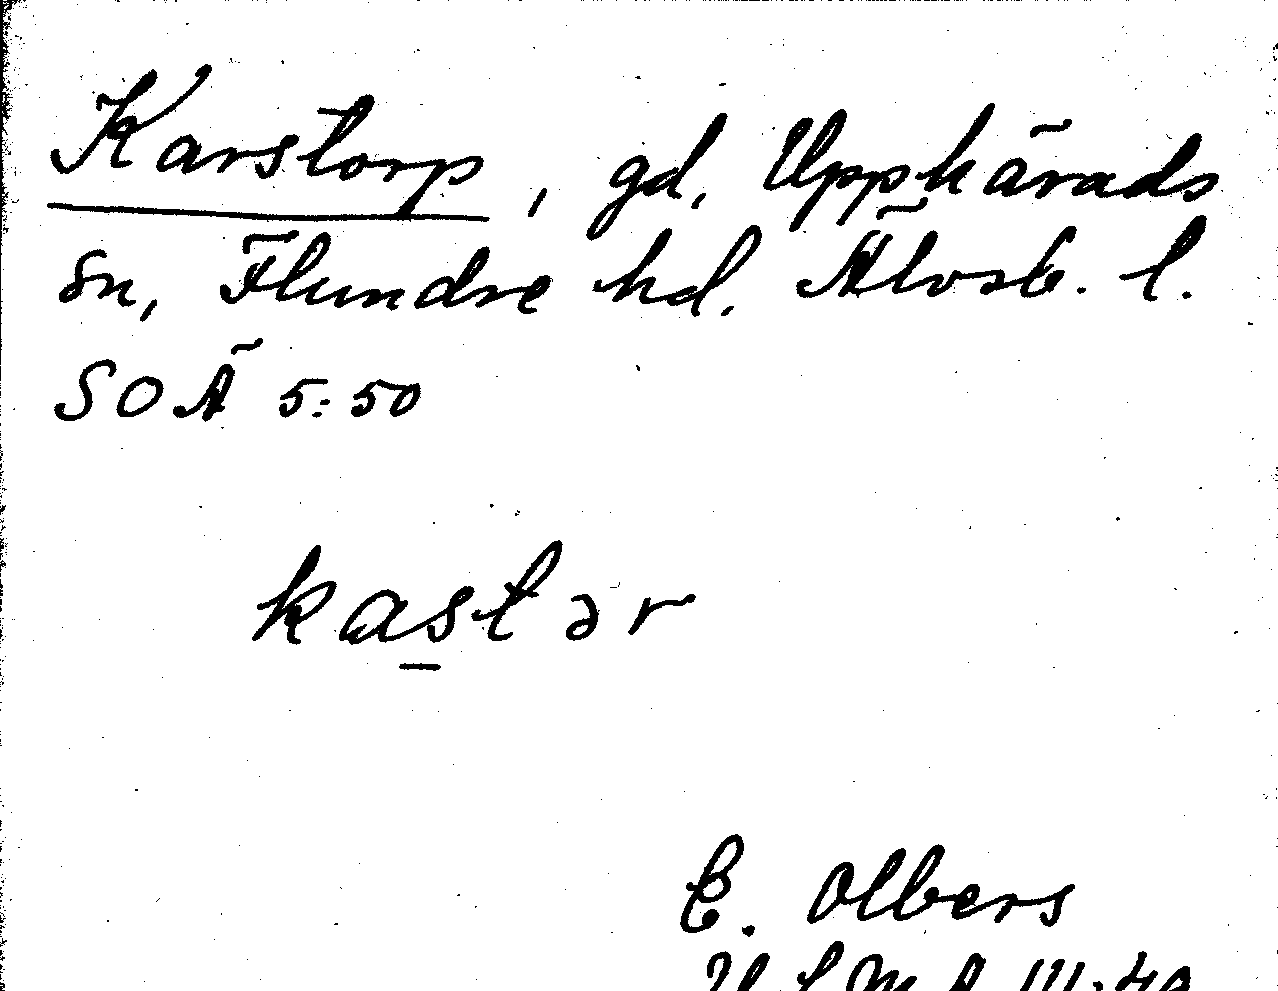 Karstorp, gd, Upphärads
sn, Flundre hd. Älvsb. l.
SOÄ 5:50
kastər
E. Olbers
III:40